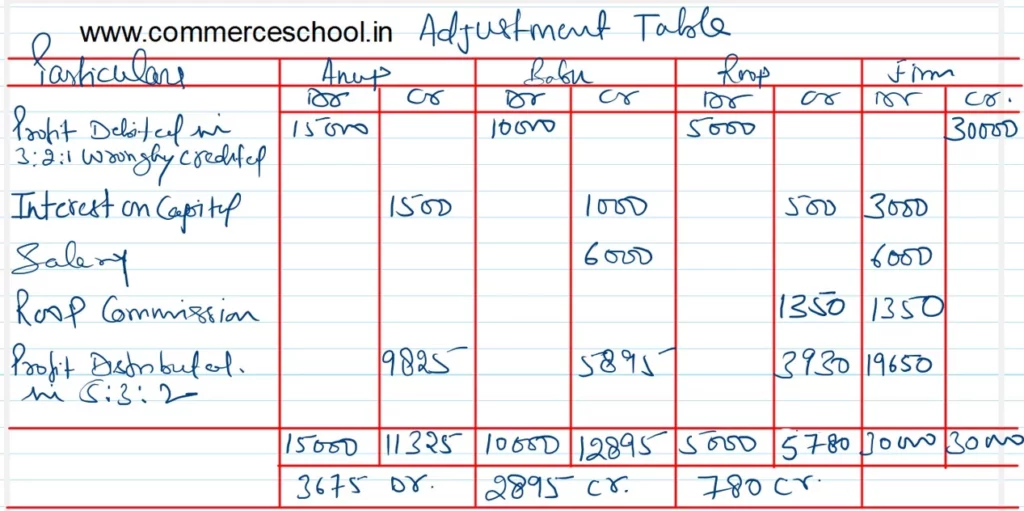 www.commerceschool.in Adjustment Table
Particulars Anup Babu Roop Firm
Dr Cr Dr Cr Dr Cr Dr Cr.
Profit Debited in 15000 10000 5000 30000
3:2:1 wrongly credited
Interest on Capital 1500 1000 500 3000
Salary 6000 6000
Roop Commission 1350 1350
Profit Distributed. 9825 5895 3930 19650
in 5:3:2
15000 11325 10000 12895 5000 5780 30000 30000
3675 Dr. 2895 Cr. 780 Cr.